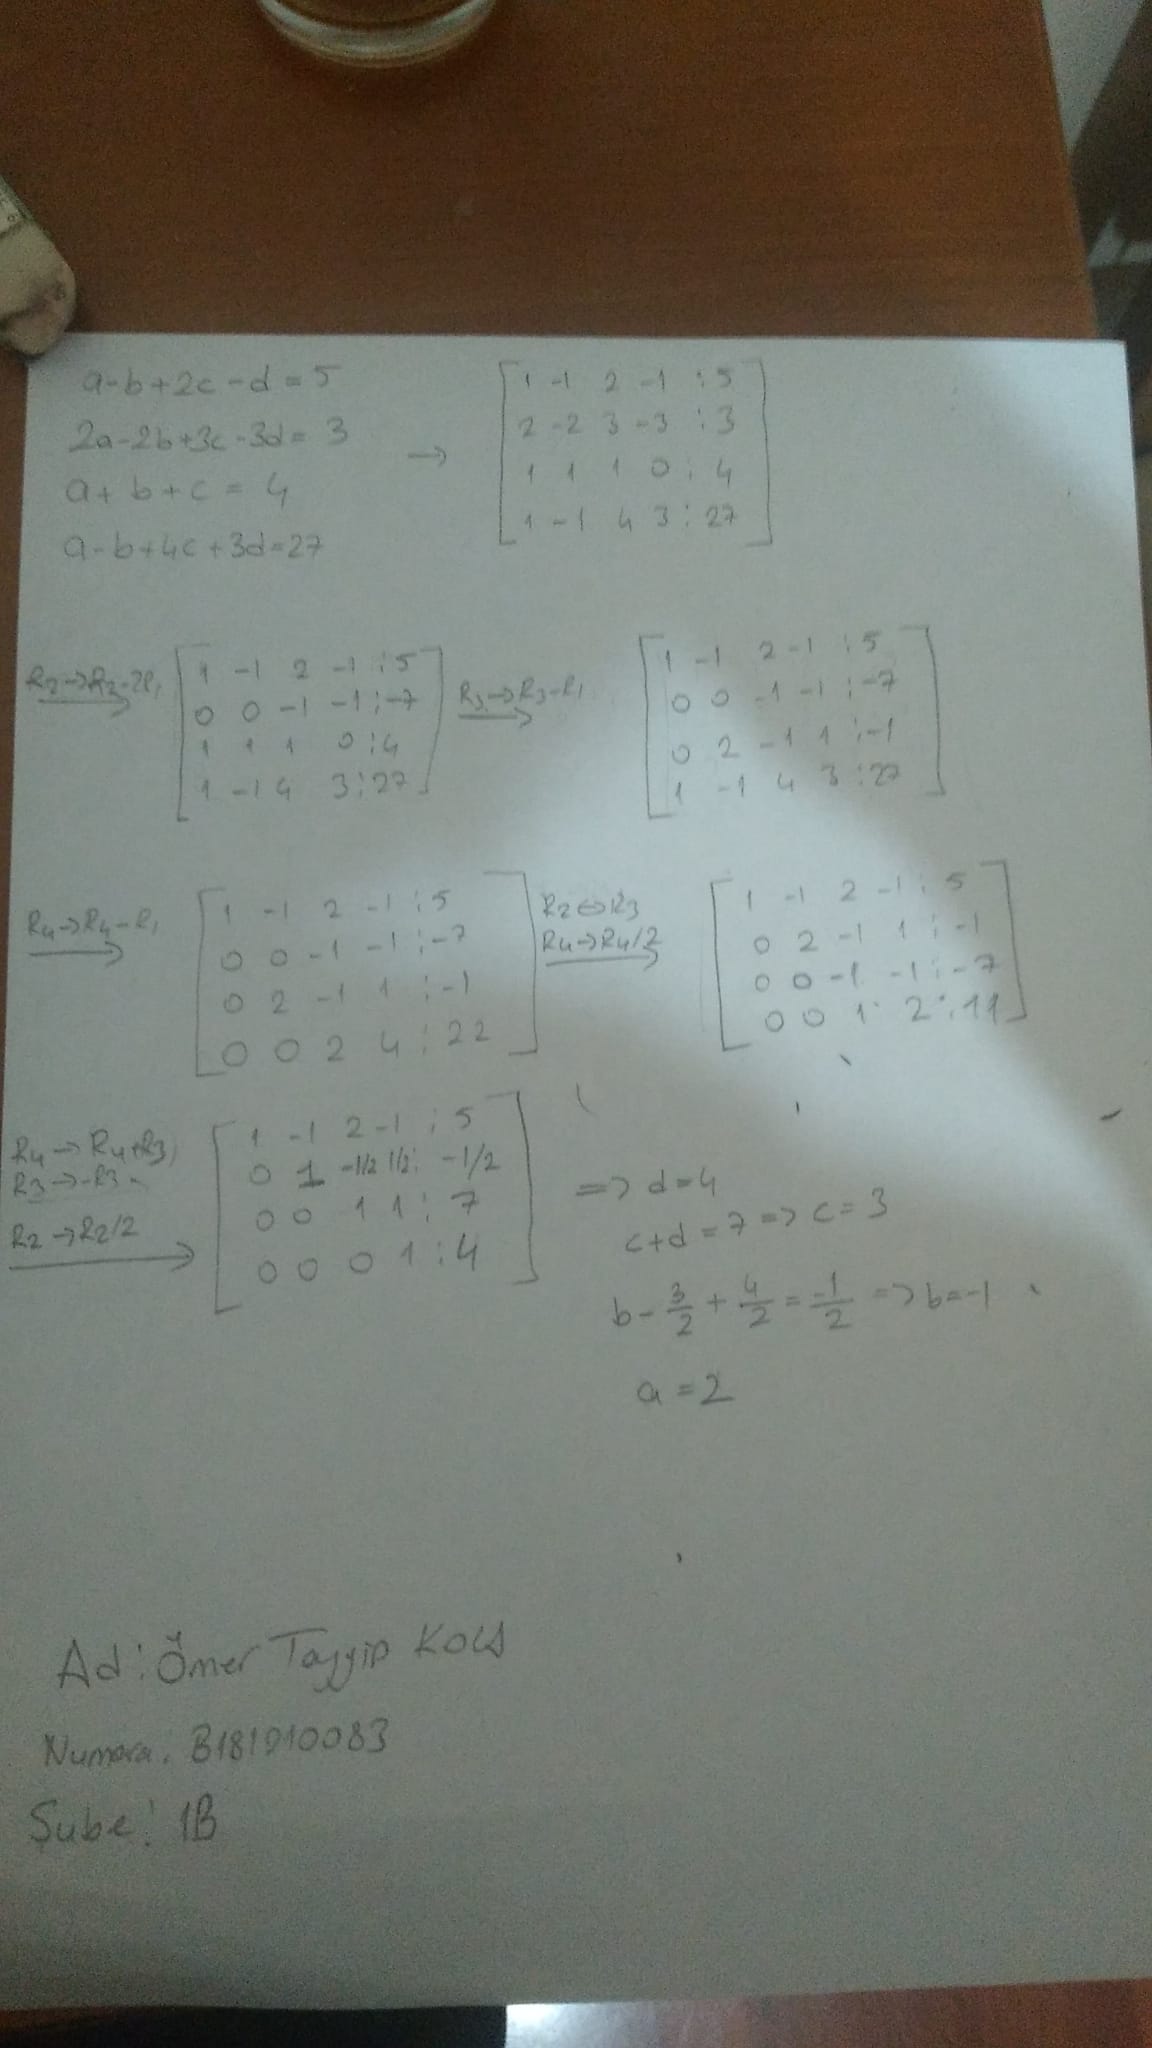 a-b+2c-d=5
2a-2b+3c-3d=3
a+b+c=4
a-b+4c+3d=27
→
1 -1 2 -1 : 5
2 -2 3 -3 : 3
1 1 1 0 : 4
1 -1 4 3 : 27
R2→R2-2R1
1 -1 2 -1 : 5
0 0 -1 -1 : -7
1 1 1 0 : 4
1 -1 4 3 : 27
R3→R3-R1
1 -1 2 -1 : 5
0 0 -1 -1 : -7
0 2 -1 1 : -1
1 -1 4 3 : 27
R4→R4-R1
1 -1 2 -1 : 5
0 0 -1 -1 : -7
0 2 -1 1 : -1
0 0 2 4 : 22
R2↔R3
R4→R4/2
1 -1 2 -1 : 5
0 2 -1 1 : -1
0 0 -1 -1 : -7
0 0 1 2 : 11
R4→R4+R3
R3→-R3
R2→R2/2
1 -1 2 -1 : 5
0 1 -1/2 1/2 : -1/2
0 0 1 1 : 7
0 0 0 1 : 4
=> d=4
c+d=7 => c=3
b-3/2+4/2=-1/2 => b=-1
a=2
Ad: Ömer Tayyip
Numara: B181910083
Şube: 1B